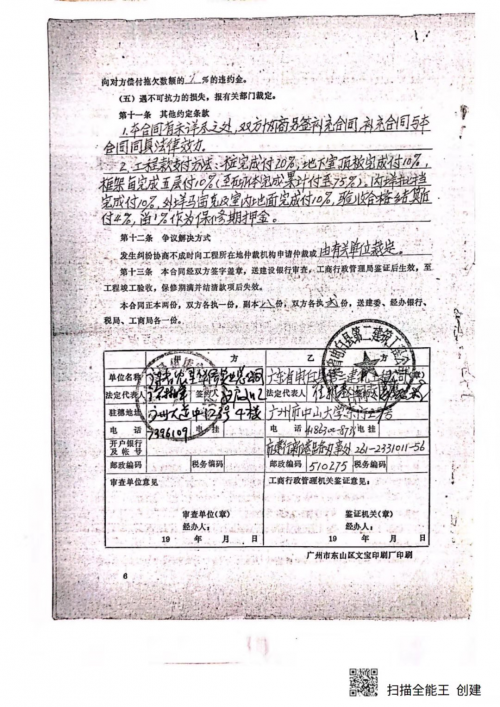 向对方偿付拖欠数额的 1 %的违约金。
(五)遇不可抗力的损失,报有关部门裁定。
第十一条 其他约定条款
1.本合同有未详尽之处,双方协商另签补充合同,补充合同与本
合同同具法律效力。
2.工程款支付方法:桩完成付20%,地下室顶板完成付10%,
框架每完成五层付10%(至主体完成累计付至75%),内外墙
完成付10%,外墙马赛克及室内地面完成付10%,验收合格结算后
付4%,留1%作为保修期押金。
第十二条 争议解决方式
发生纠纷协商不成时向工程所在地仲裁机构申请仲裁或 由有关单位裁定。
第十三条 本合同经双方签字盖章,送建设银行审查,工商行政管理局鉴证后生效,至
工程竣工验收,保修期满并结清款项后失效。
本合同正本两份,双方各执一份,副本 八 份,双方各执 份,送建委、经办银行、
税局、工商局各一份。
方 乙 方
单位名称 广东省电白县第二建筑工程公司
法定代表人 签约人 法定代表人
驻穗地址 4楼 广州市中山大学
电话 7396109 电挂 电话 电挂
开户银行及帐号 261-2331011-56
邮政编码 税务编码 邮政编码 510275 税务编码
审查单位意见 工商行政管理机关鉴证意见:
审查单位(章) 鉴证机关(章)
经办人: 经办人:
19 年 月 日 19 年 月 日
广州市东山区文宝印刷厂印刷
6
扫描全能王 创建